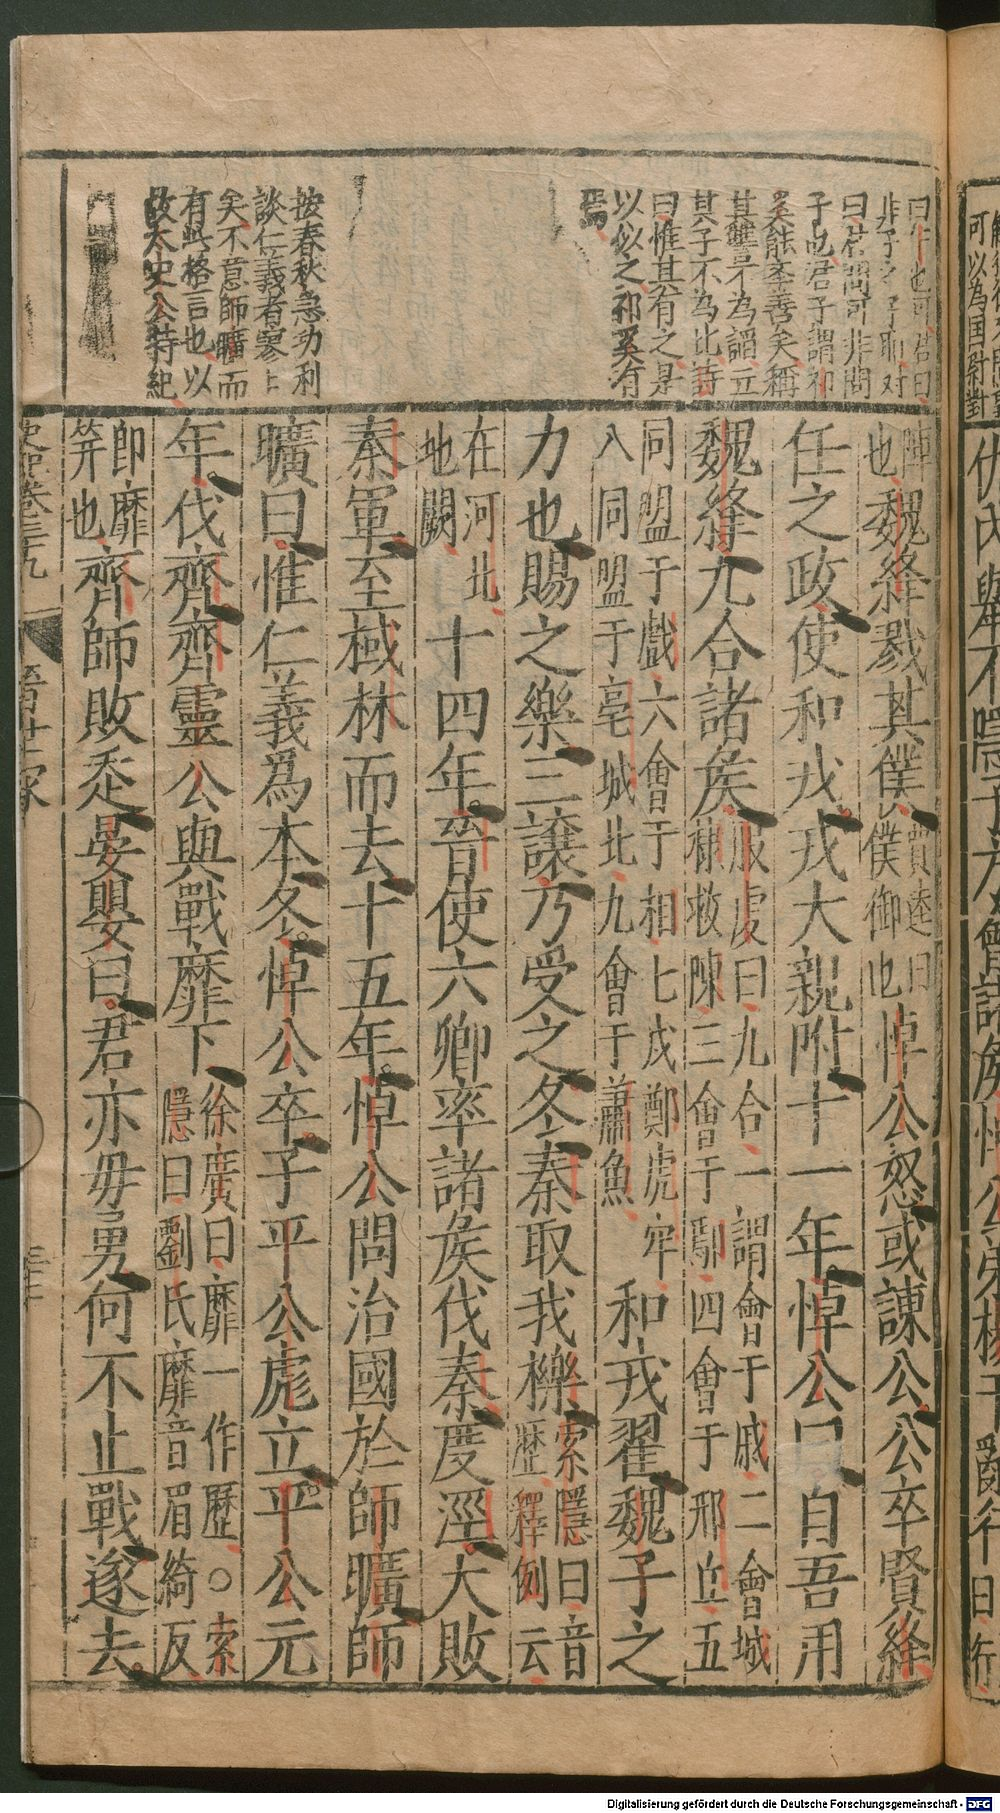 曰午也可君曰
非子之子耶对
曰君問可非問
子也君子謂祁
奚能舉善矣稱
其讐不為謟立
其子不為比詩
曰惟其有之是
以似之祁奚有
焉
按春秋急功利
談仁義者寥寥
矣不意師曠而
有此格言也以
故太史公特紀
陣也魏絳戮其僕賈逵曰僕御也悼公怒或諫公公卒賢絳
任之政使和戎戎大親附十一年悼公曰自吾用
魏絳九合諸矦服虔曰九合一謂會于戚二會城棣救陳三會于鄢四會于邢丘五
同盟于戲六會于相七戍鄭虎牢八同盟于亳城北九會于蕭魚和戎翟魏子之
力也賜之樂三讓乃受之冬秦取我櫟索隱曰音歷釋例云
在河北地闕十四年晉使六卿率諸矦伐秦度涇大敗
秦軍至棫林而去十五年悼公問治國於師曠師
曠曰惟仁義爲本冬悼公卒子平公彪立平公元
年伐齊齊靈公與戰靡下徐廣曰靡一作歷○索隱曰劉氏靡音眉綺反
即靡笄也齊師敗走晏嬰曰君亦毋勇何不止戰遂去
史記卷三十九 晉世家
可以為国尉對
仇内舉不隱子方會諸矦悼公弟楊干
亂行
曰行
Digitalisierung gefördert durch die Deutsche Forschungsgemeinschaft - DFG